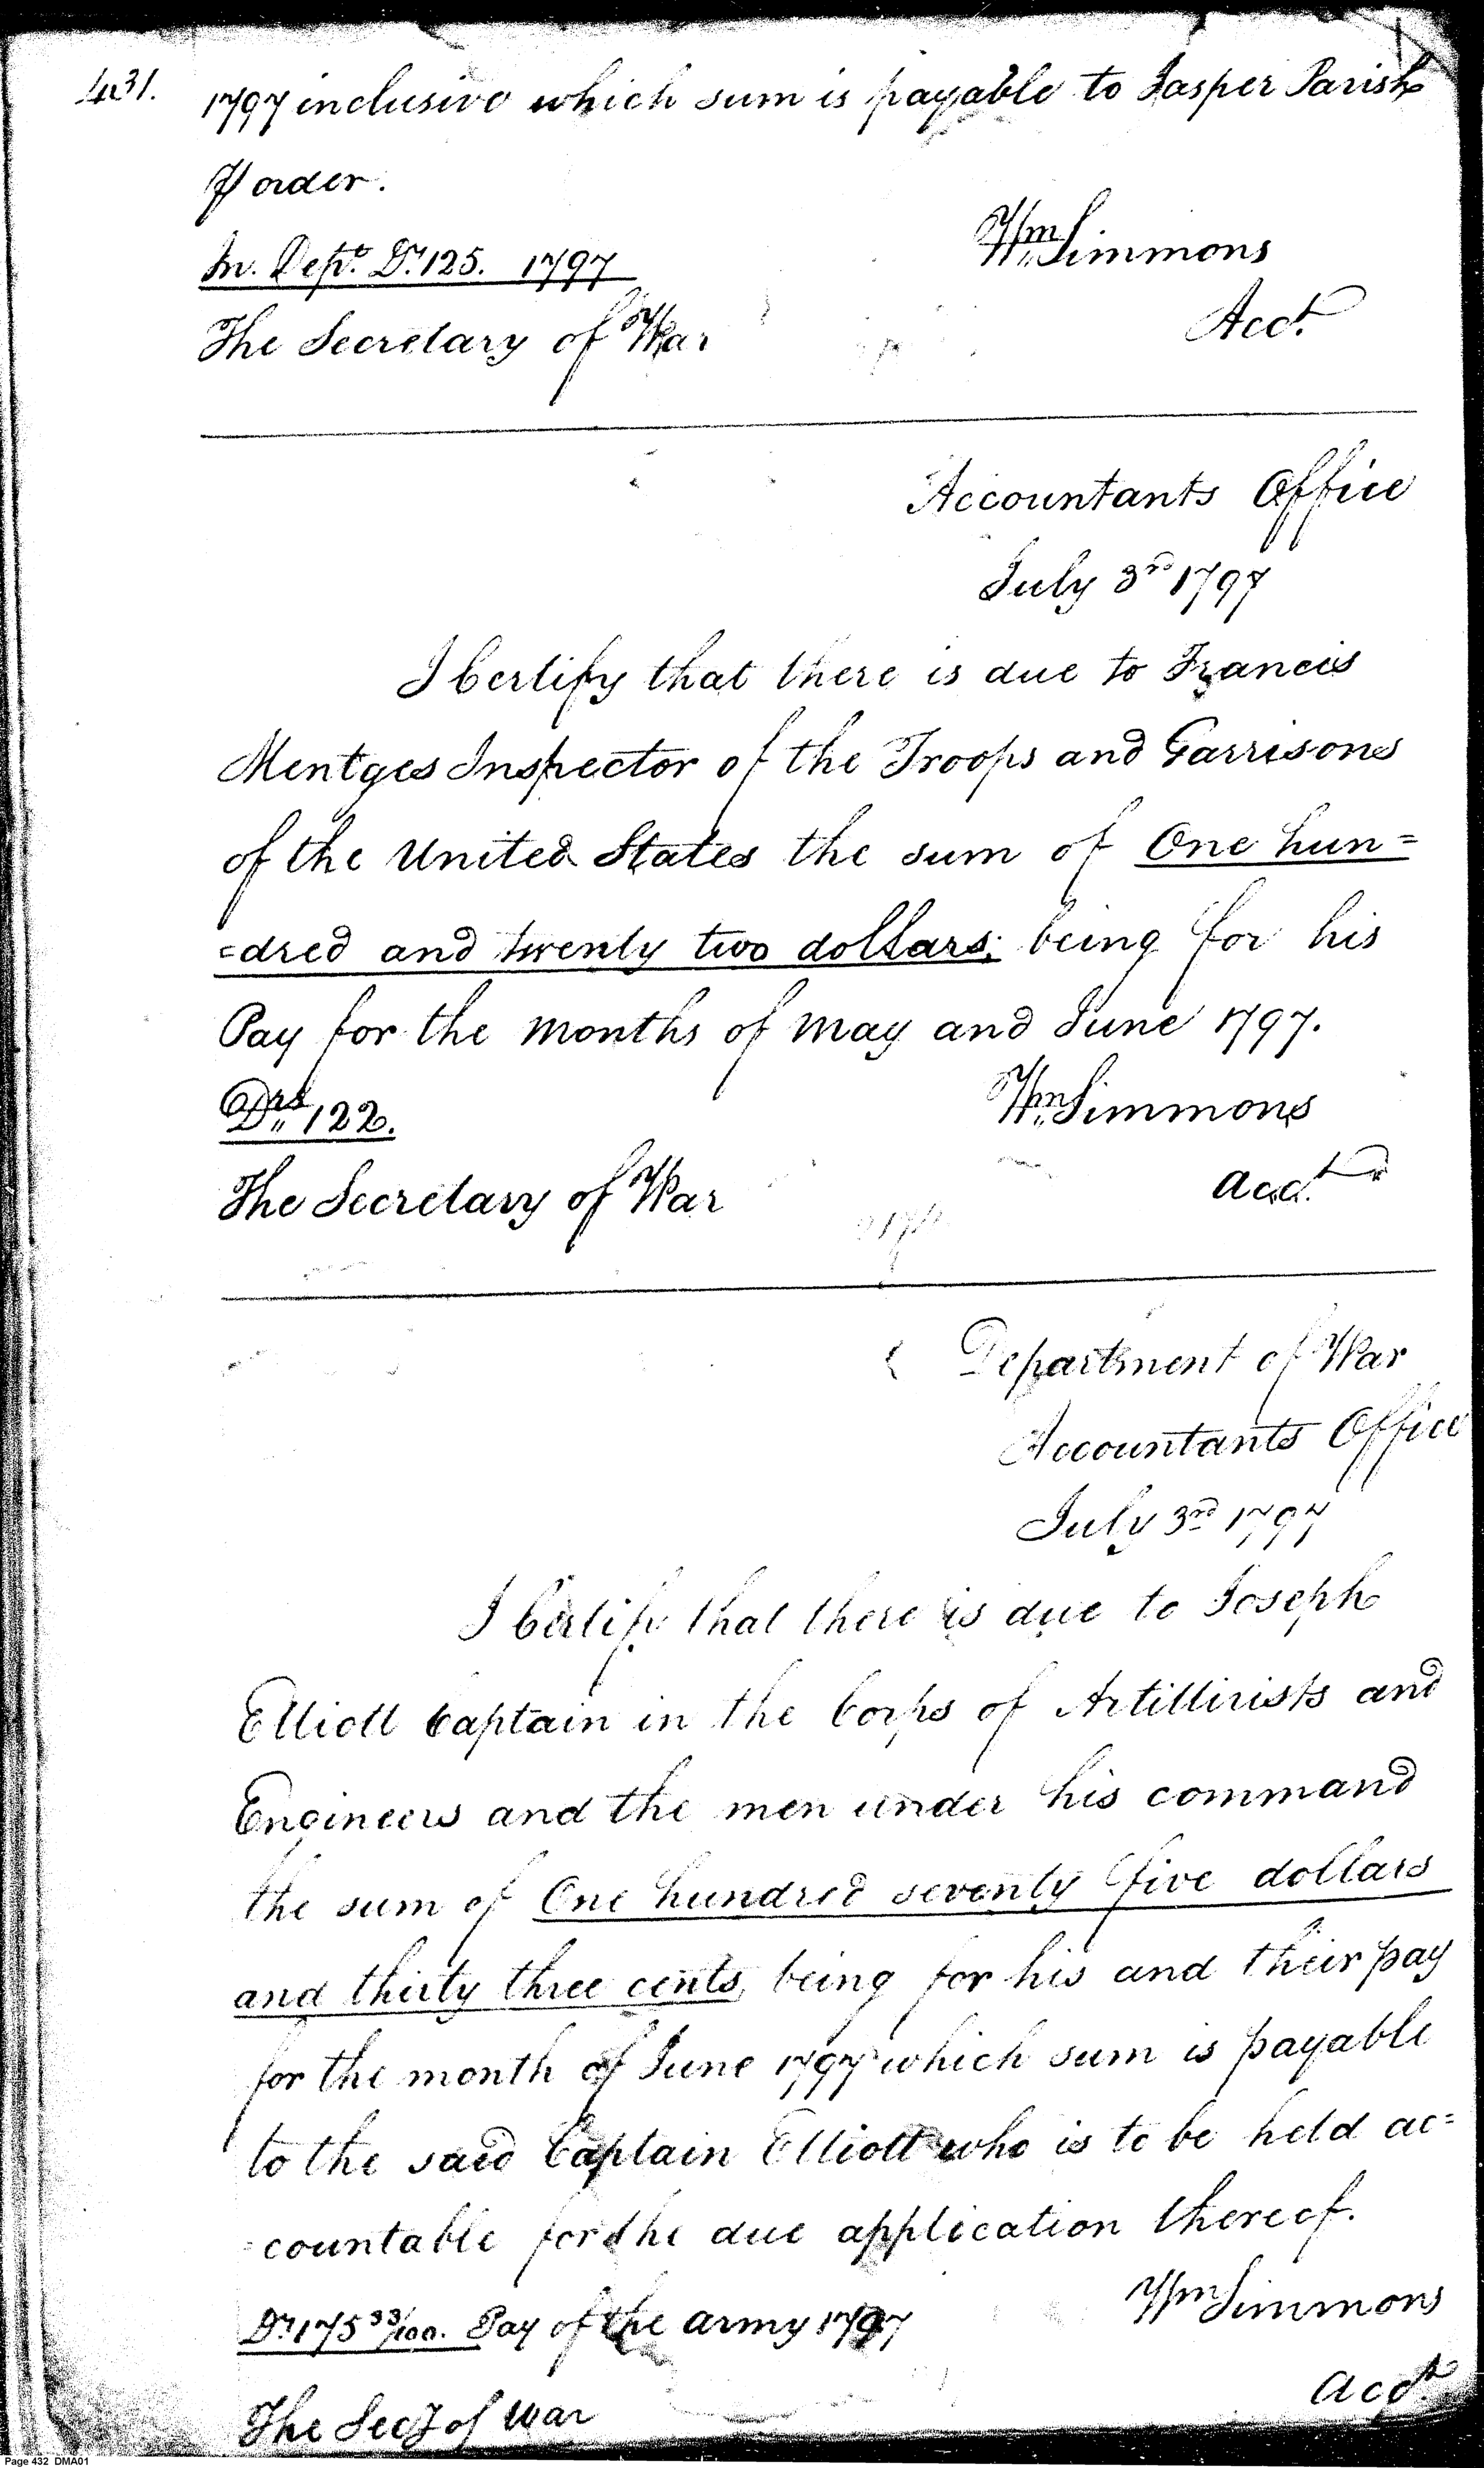 431.
1797 inclusive which sum is payable to Jasper Parish
⅌ order.
In. Dept. Ds. 125. 1797
Wm. Simmons
The Secretary of War
Acct.
Accountants Office
July 3rd 1797
I Certify that there is due to Francis
Mentges Inspector of the Troops and Garrisons
of the United States the sum of One hun=
=dred and twenty two dollars; being for his
Pay for the months of May and June 1797.
Drs. 122.
Wm. Simmons
The Secretary of War
acct.
Department of War
Accountants Office
July 3rd 1797
I Certify that there is due to Joseph
Elliott Captain in the Corps of Artillirists and
Engineers and the men under his command
the sum of One hundred seventy five dollars
and thirty three cents, being for his and their pay
for the month of June 1797 which sum is payable
to the said Captain Elliott who is to be held ac=
=countable for the due application thereof.
Ds. 175 33/100. Pay of the army 1797
Wm Simmons
acct.
The Secy of War
Page 432 DMA01